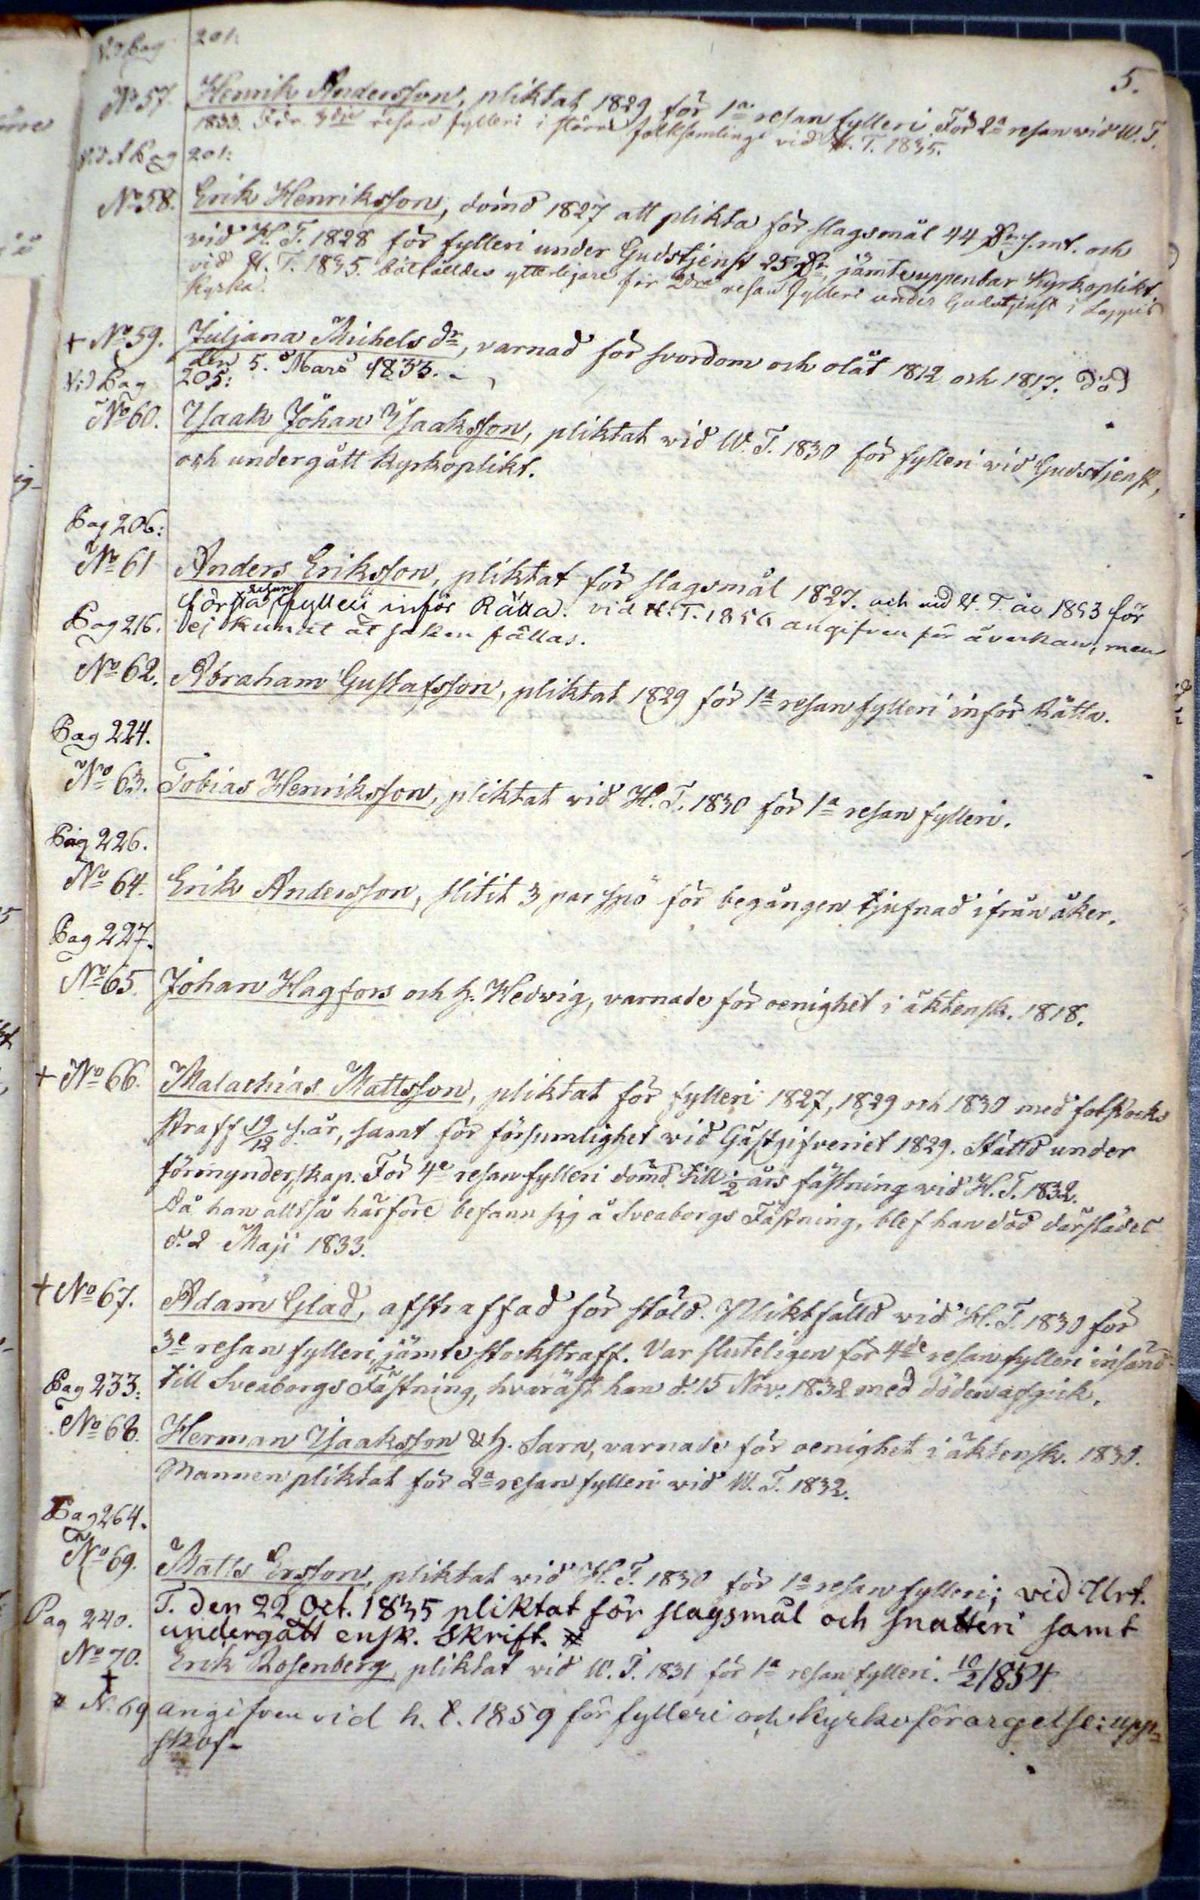 5.
Vid Pag 201:
No 57. Henrik Andersson, pliktat 1829 för 1a resan fylleri. För 2a resan vid W. T.
1833. För 3die resan fylleri i större folksamlings vid H. T. 1835.
Vid Pag 201:
No 58. Erik Henriksson, dömd 1827 att plikta för slagsmål 44 S.mt. och
vid H. T. 1828 för fylleri under Gudstjenst 25 jämte uppenbar Kyrkoplikt
vid H. T. 1835 bötfälldes ytterligare för 2dra resan fylleri under Gudstjenst i Lappis
Kyrka.
+ No 59. Juliana Michels dr, varnad för svordom och olåt 1812 och 1817. Död
den 5. Mars 1833.
Vid Pag 205:
No 60. Isaak Johan Isaaksson, pliktat vid W. T. 1830 för fylleri vid Gudstjenst,
och undergått Kyrkoplikt.
Pag 206:
No 61 Anders Eriksson, pliktat för slagsmål 1827. och vid H. T. år 1853 för
första resan fylleri inför Rätta. vid H. T. 1856 angifven för åverkan, men
ej kunnat åt saken fällas.
Pag 216.
No 62. Abraham Gustafsson, pliktat 1829 för 1a resan fylleri inför Rätta.
Pag 224.
No 63. Tobias Henriksson, pliktat vid H. T. 1830 för 1a resan fylleri.
Pag 226.
No 64. Erik Andersson, slitit 3 par spö för begången tjufnad ifrån åker.
Pag 227.
No 65. Johan Hagfors och h. Hedvig, varnade för oenighet i äktensk. 1818.
+ No 66. Malachias Mattsson, pliktat för fylleri 1827, 1829 och 1830 med fotstocks
straff 19/12 s. år, samt för försumlighet wid Gästgifveriet 1829. Ställd under
förmynderskap. För 4e resan fylleri dömd till 1/2 års fästning wid H. T. 1832.
Då han alltså härföre befann sig å Sveaborgs Fästning, blef han död därstädes
d. 2 Maji 1833.
+ No 67. Adam Glad, afstraffad för stöld. Pliktfälld wid H. T. 1830 för
3e resan fylleri, jämte stockstraff. Var sluteligen för 4de resan fylleri insänd
till Sveaborgs Fästning, hvaräst han d. 15 Nov. 1832 med döden afgick.
Pag 233:
No 68. Herman Isaaksson & h. Sara, varnade för oenighet i äktensk. 1830.
Mannen pliktat för 2a resan fylleri vid W. T. 1832.
Pag 264.
No 69. Matts Ersson, pliktat vid H. T. 1830 för 1a resan fylleri; vid Urt.
T. den 22 Oct. 1835 pliktat för slagsmål och snatteri samt
undergått ensk. Skrift. #
Pag 240.
No 70. Erik Rosenberg, pliktat vid W. T. 1831 för 1a resan fylleri. 10/2 1854
+
# No 69 angifven vid h. t. 1859 för fylleri och kyrkoförargelse: upp-
skof-